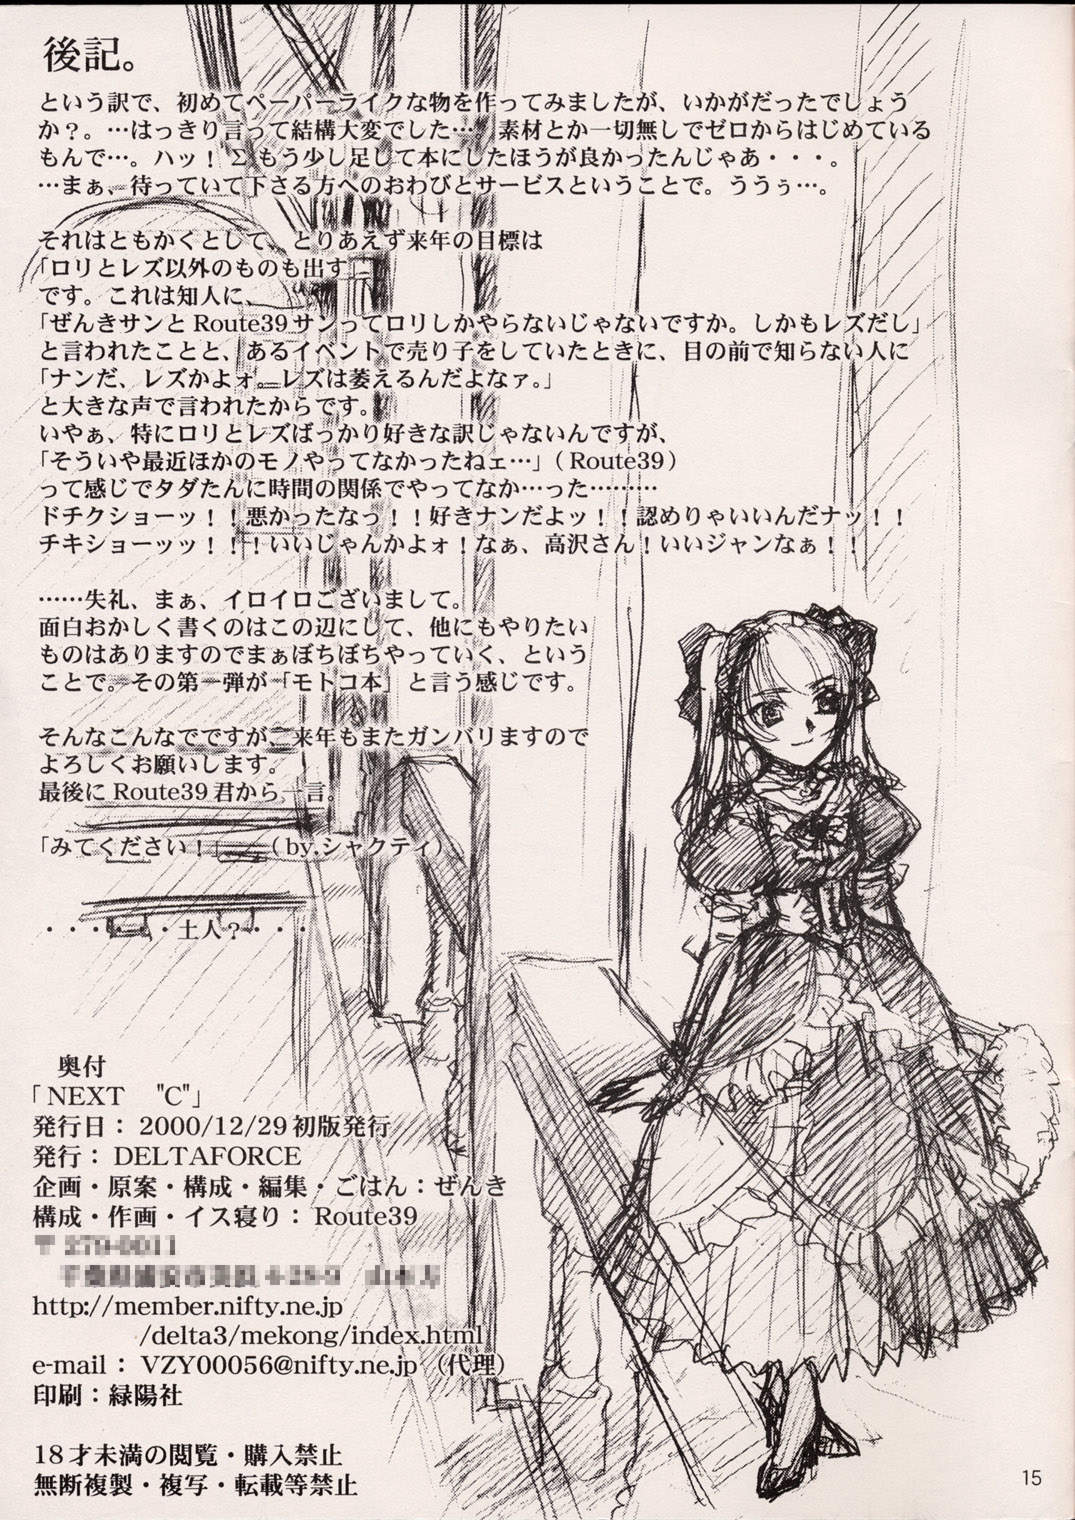 後記。
という訳で、初めてペーパーライクな物を作ってみましたが、いかがだったでしょう
か？。…はっきり言って結構大変でした…。素材とか一切無しでゼロからはじめている
もんで…。ハッ！Σもう少し足して本にしたほうが良かったんじゃあ・・・。
…まぁ、待っていて下さる方へのおわびとサービスということで。ううぅ…。
それはともかくとして、とりあえず来年の目標は
「ロリとレズ以外のものも出す」
です。これは知人に、
「ぜんきサンと Route39 サンってロリしかやらないじゃないですか。しかもレズだし」
と言われたことと、あるイベントで売り子をしていたときに、目の前で知らない人に
「ナンだ、レズかよォ。レズは萎えるんだよなァ。」
と大きな声で言われたからです。
いやぁ、特にロリとレズばっかり好きな訳じゃないんですが、
「そういや最近ほかのモノやってなかったねェ…」（Route39）
って感じでタダたんに時間の関係でやってなか…った………
ドチクショーッ！！悪かったなっ！！好きナンだよッ！！認めりゃいいんだナッ！！
チキショーッッ！！！いいじゃんかよォ！なぁ、高沢さん！いいジャンなぁ！！
……失礼、まぁ、イロイロございまして。
面白おかしく書くのはこの辺にして、他にもやりたい
ものはありますのでまぁぼちぼちやっていく、という
ことで。その第一弾が「モトコ本」と言う感じです。
そんなこんなでですが、来年もまたガンバリますので
よろしくお願いします。
最後に Route39 君から一言。
「みてください！」　（by.シャクティ）
・・・・・・土人？・・・
奥付
「NEXT　"C"」
発行日：2000/12/29 初版発行
発行：DELTAFORCE
企画・原案・構成・編集・ごはん：ぜんき
構成・作画・イス寝り：Route39
http://member.nifty.ne.jp
/delta3/mekong/index.html
e-mail：VZY00056@nifty.ne.jp（代理）
印刷：緑陽社
18才未満の閲覧・購入禁止
無断複製・複写・転載等禁止
15